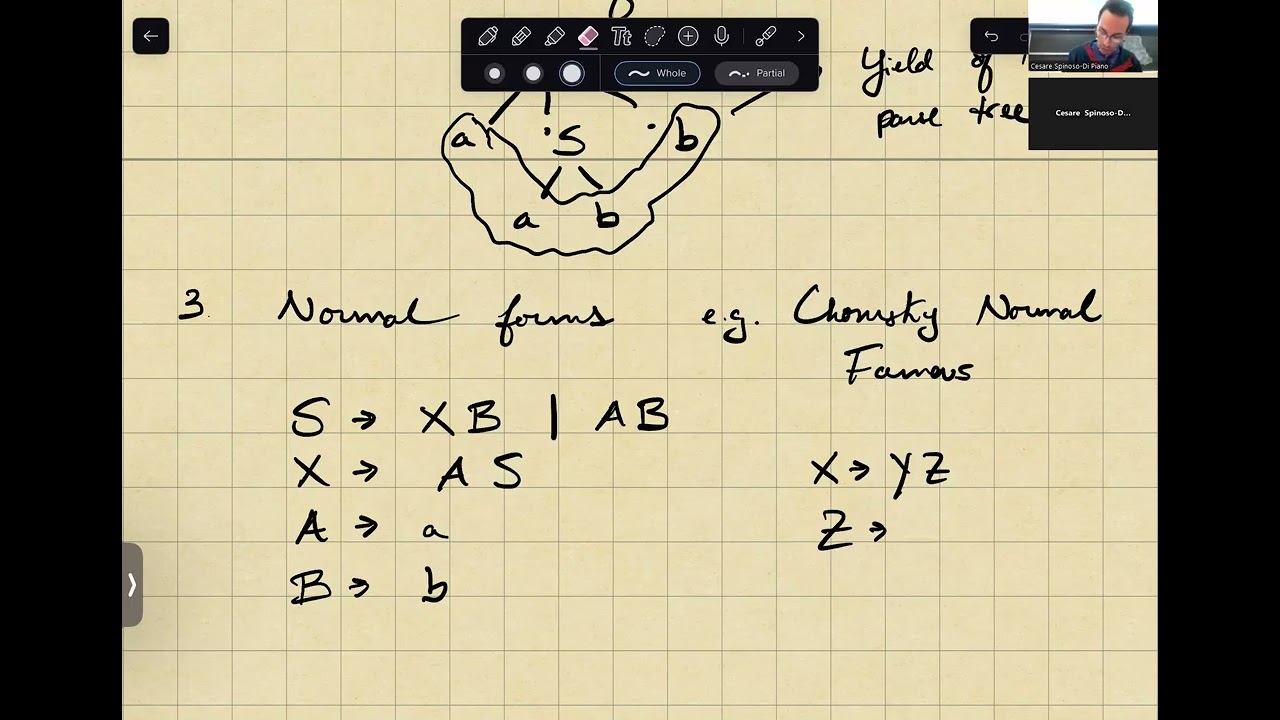 Tt
Whole
Partial
Cesare Spinoso-Di Piano
Cesare Spinoso-D...
Yield of
parse tree
S
a
S
b
a
b
3. Normal forms e.g. Chomsky Normal
Famous
S → XB | AB
X → AS
A → a
B → b
X → YZ
Z →